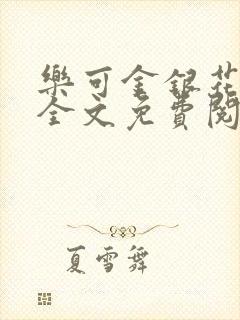 樂可金銀花
全文免費閱
夏雪舞